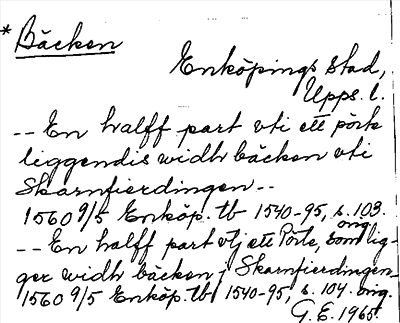 * Bäcken
Enköpings stad,
Upps. l.
-- En halff part vti ett pörte
liggendis widh bäcken vti
Skarnfierdingen --
1560 9/5 Enköp. tb 1540-95, s. 103.
orig.
-- En halff part vtj ett Pörte, som lig-
ger widh bäcken j Skarnfierdingen
1560 9/5 Enköp. tb 1540-95, s. 104. orig.
G. E. 1965